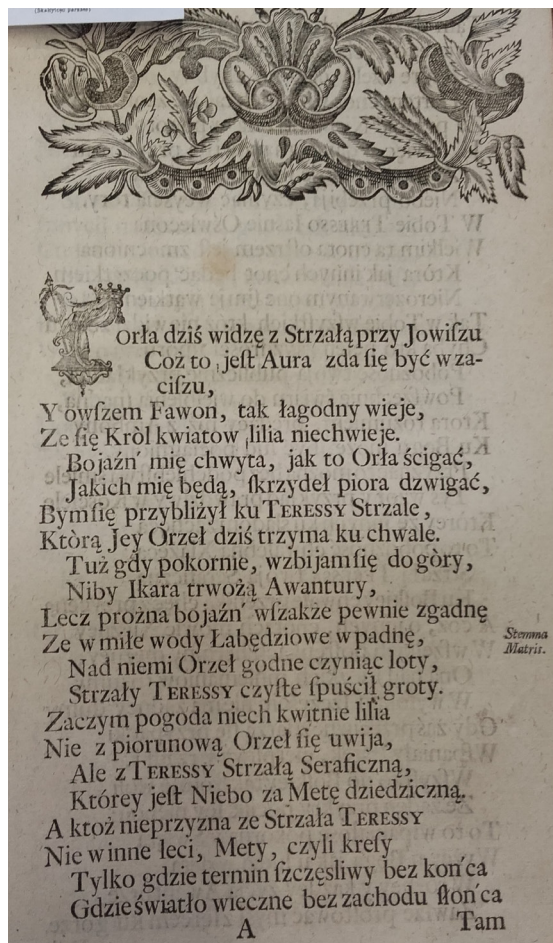 Forła dziś widzę z Strzałą przy Jowiſzu
Coż to, jeſt Aura zda ſię być w za-
ciſzu,
Y owſzem Fawon, tak łagodny wieje,
Ze ſię Kròl kwiatow lilia niechwieje.
Bojaźń mię chwyta, jak to Orła ścigać,
Jakich mię będą, ſkrzydeł piora dzwigać,
Bym ſię przybliżył ku TERESSY Strzale,
Którą Jey Orzeł dziś trzyma ku chwale.
Tuż gdy pokornie, wzbijam ſię do gòry,
Niby Ikara trwożą Awantury,
Lecz prożna bojaźń wſzakże pewnie zgadnę
Ze w miłe wody Łabędziowe wpadnę,
Stemma
Matris.
Nad niemi Orzeł godne czyniąc loty,
Strzały TERESSY czyſte ſpuścił groty.
Zaczym pogoda niech kwitnie lilia
Nie z piorunową Orzeł ſię uwija,
Ale z TERESSY Strzałą Seraficzną,
Którey jeſt Niebo za Metę dziedziczną.
A ktoż nieprzyzna ze Strzała TERESSY
Nie winne leci, Mety, czyli kreſy
Tylko gdzie termin ſzczęsliwy bez końca
Gdzie światło wieczne bez zachodu ſłońca
A
Tam